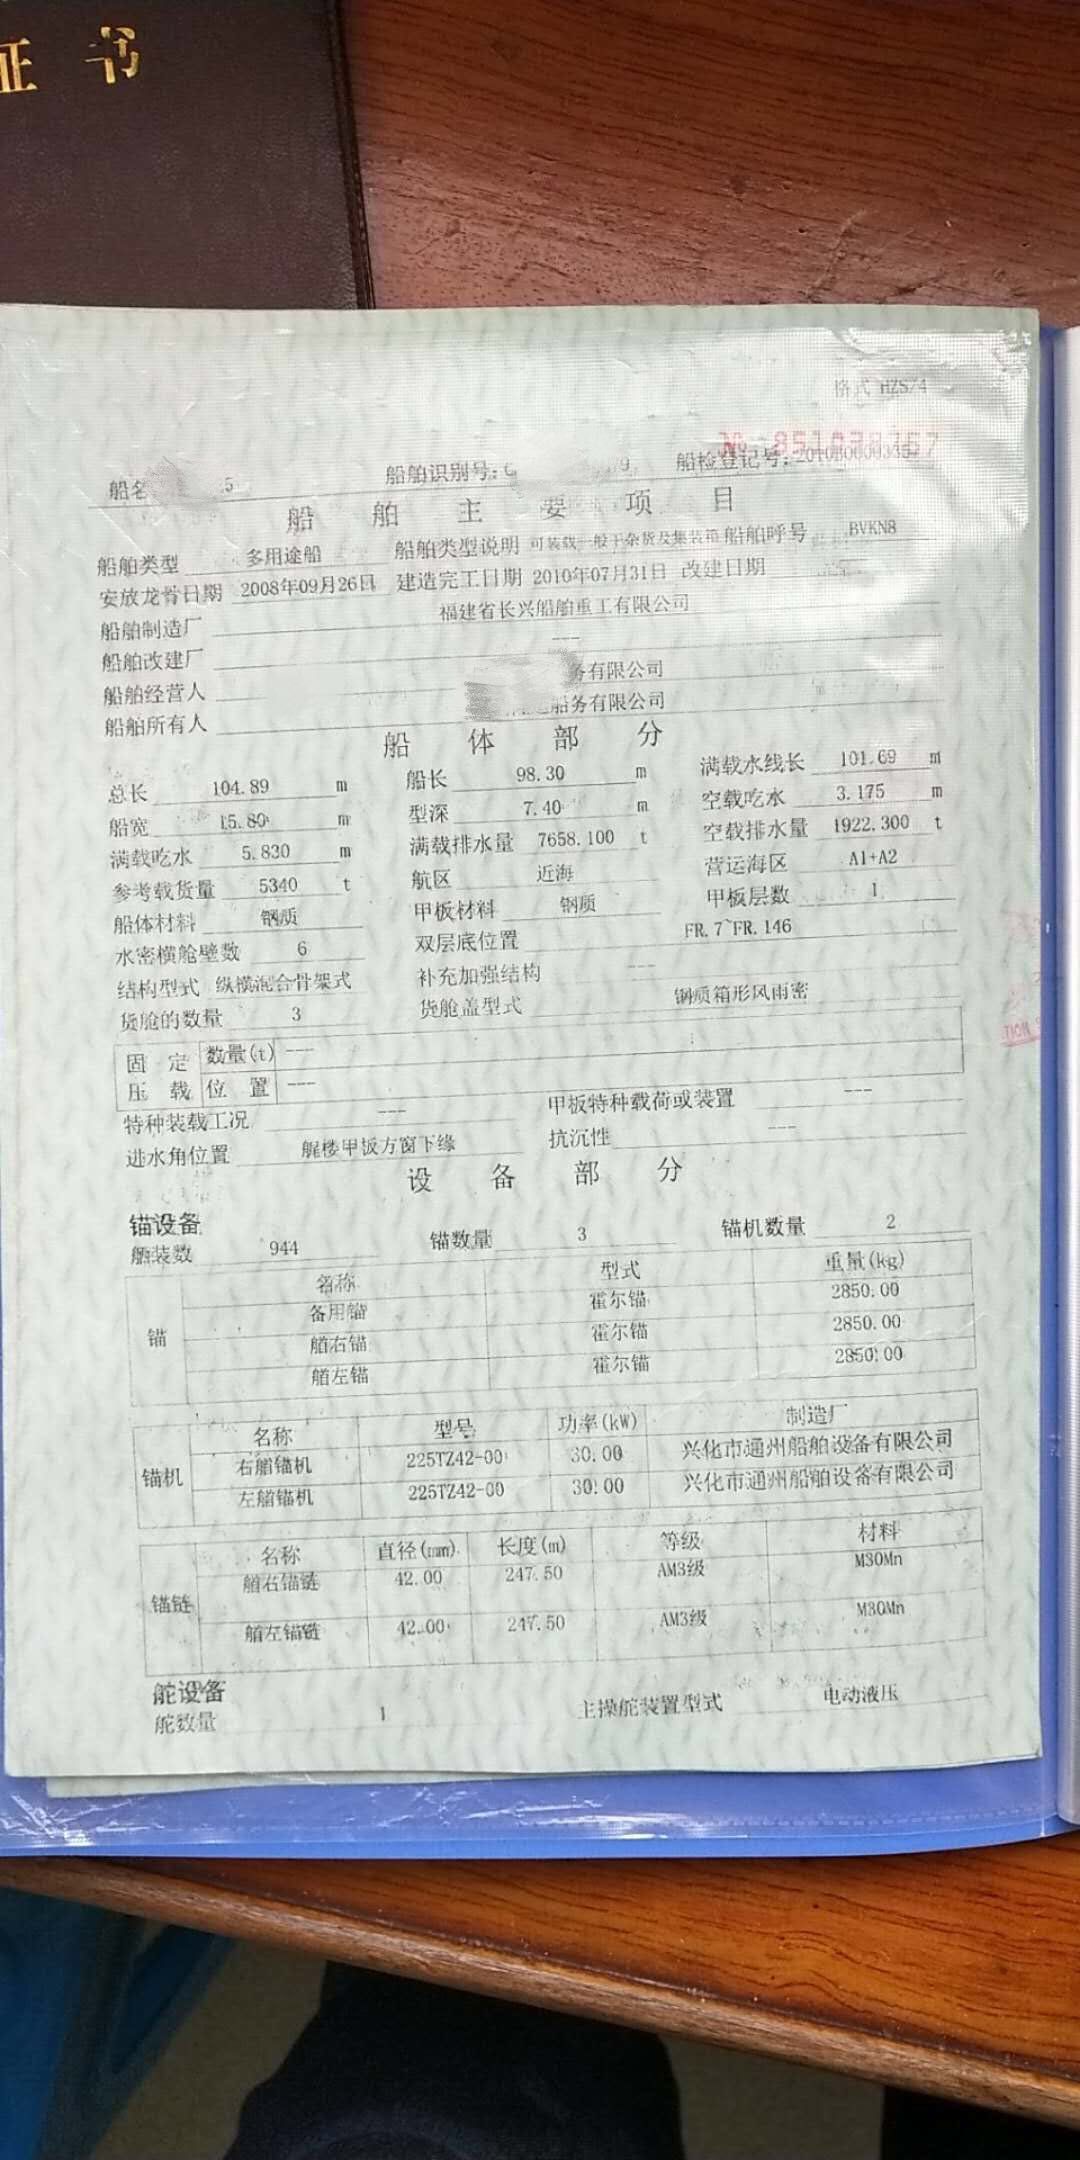 证 书
格式 HZS/4
船名 5 船舶识别号: 9 船检登记号:
船 舶 主 要 项 目
船舶类型 多用途船 船舶类型说明 可装载一般干杂货及集装箱 船舶呼号 BVKN8
安放龙骨日期 2008年09月26日 建造完工日期 2010年07月31日 改建日期
船舶制造厂 福建省长兴船舶重工有限公司
船舶改建厂 ---
船舶经营人 务有限公司
船舶所有人 船务有限公司
船 体 部 分
总长 104.89 m 船长 98.30 m 满载水线长 101.69 m
船宽 15.80 m 型深 7.40 m 空载吃水 3.175 m
满载吃水 5.830 m 满载排水量 7658.100 t 空载排水量 1922.300 t
参考载货量 5340 t 航区 近海 营运海区 A1+A2
船体材料 钢质 甲板材料 钢质 甲板层数 1
水密横舱壁数 6 双层底位置 FR.7~FR.146
结构型式 纵横混合骨架式 补充加强结构 ---
货舱的数量 3 货舱盖型式 钢质箱形风雨密
固 定 数量(t) ---
压 载 位 置 ---
特种装载工况 --- 甲板特种载荷或装置 ---
进水角位置 艉楼甲板方窗下缘 抗沉性 ---
设 备 部 分
锚设备
舾装数 944 锚数量 3 锚机数量 2
名称 型式 重量(kg)
备用锚 霍尔锚 2850.00
锚 艏右锚 霍尔锚 2850.00
艏左锚 霍尔锚 2850.00
名称 型号 功率(kW) 制造厂
锚机 右艏锚机 225TZ42-00 30.00 兴化市通州船舶设备有限公司
左艏锚机 225TZ42-00 30.00 兴化市通州船舶设备有限公司
名称 直径(mm) 长度(m) 等级 材料
锚链 艏右锚链 42.00 247.50 AM3级 M30Mn
艏左锚链 42.00 247.50 AM3级 M30Mn
舵设备
舵数量 1 主操舵装置型式 电动液压